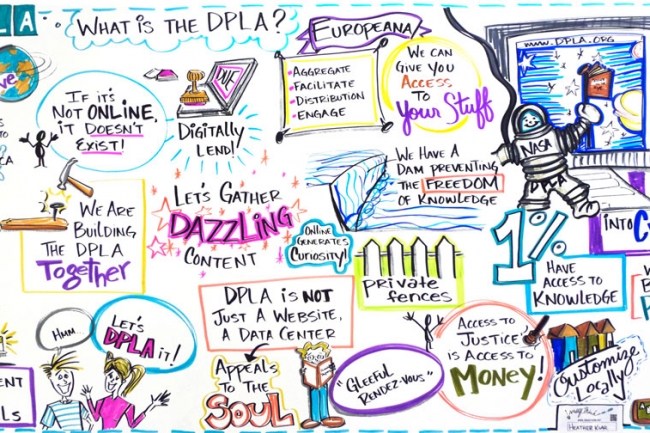 LA
WHAT IS THE DPLA?
IF IT'S
NOT ONLINE,
IT DOESN'T
EXIST!
DUE
DIGITALLY
LEND!
EUROPEANA
• AGGREGATE
• FACILITATE
• DISTRIBUTION
• ENGAGE
WE CAN
GIVE YOU
ACCESS
TO
YOUR STUFF
WWW.DPLA.ORG
NASA
DPLA
WE ARE
BUILDING
THE DPLA
TOGETHER
LET'S GATHER
DAZZLING
CONTENT
ONLINE
GENERATES
CURIOSITY!
WE HAVE A
DAM PREVENTING
THE FREEDOM
OF KNOWLEDGE
PRIVATE
FENCES
1%
HAVE
ACCESS TO
KNOWLEDGE
INTO
HMM
LET'S
DPLA
IT!
DPLA IS NOT
JUST A WEBSITE,
A DATA CENTER
APPEALS
TO THE
SOUL
"GLEEFUL
RENDEZ-VOUS"
ACCESS TO
JUSTICE
IS ACCESS TO
MONEY!
CUSTOMIZE
LOCALLY